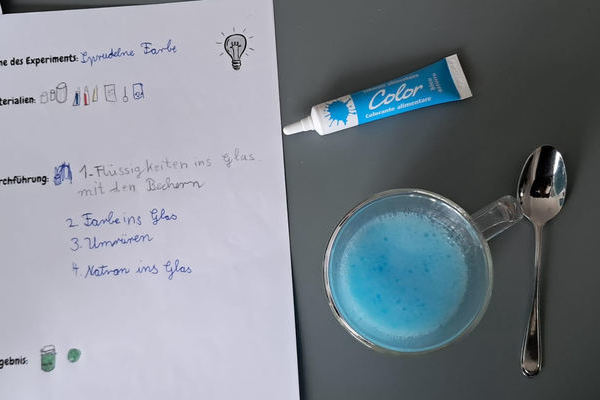 me des Experiments: Sprudelne Farbe
terialien:
rchführung: 1. Flüssigkeiten ins Glas
mit den Bechern
2. Farbe ins Glas
3. Umrüren
4. Natron ins Glas
gebnis:
Color
Colorante alimentare